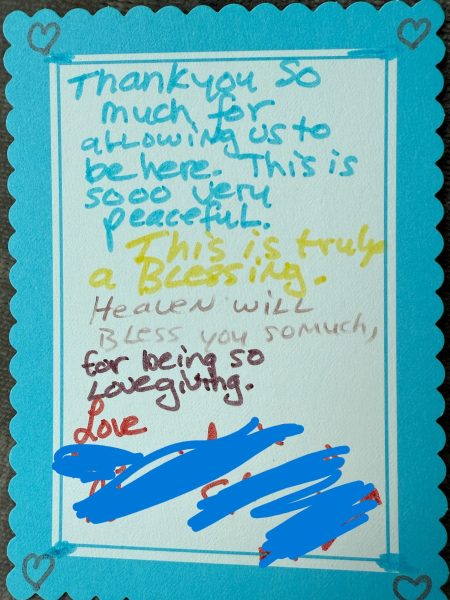 Thankyou So
much for
allowing us to
be here. This is
sooo very
peaceful.
This is truly
a Blessing.
Heaven will
Bless you somuch,
for being so
Lovegiving.
Love